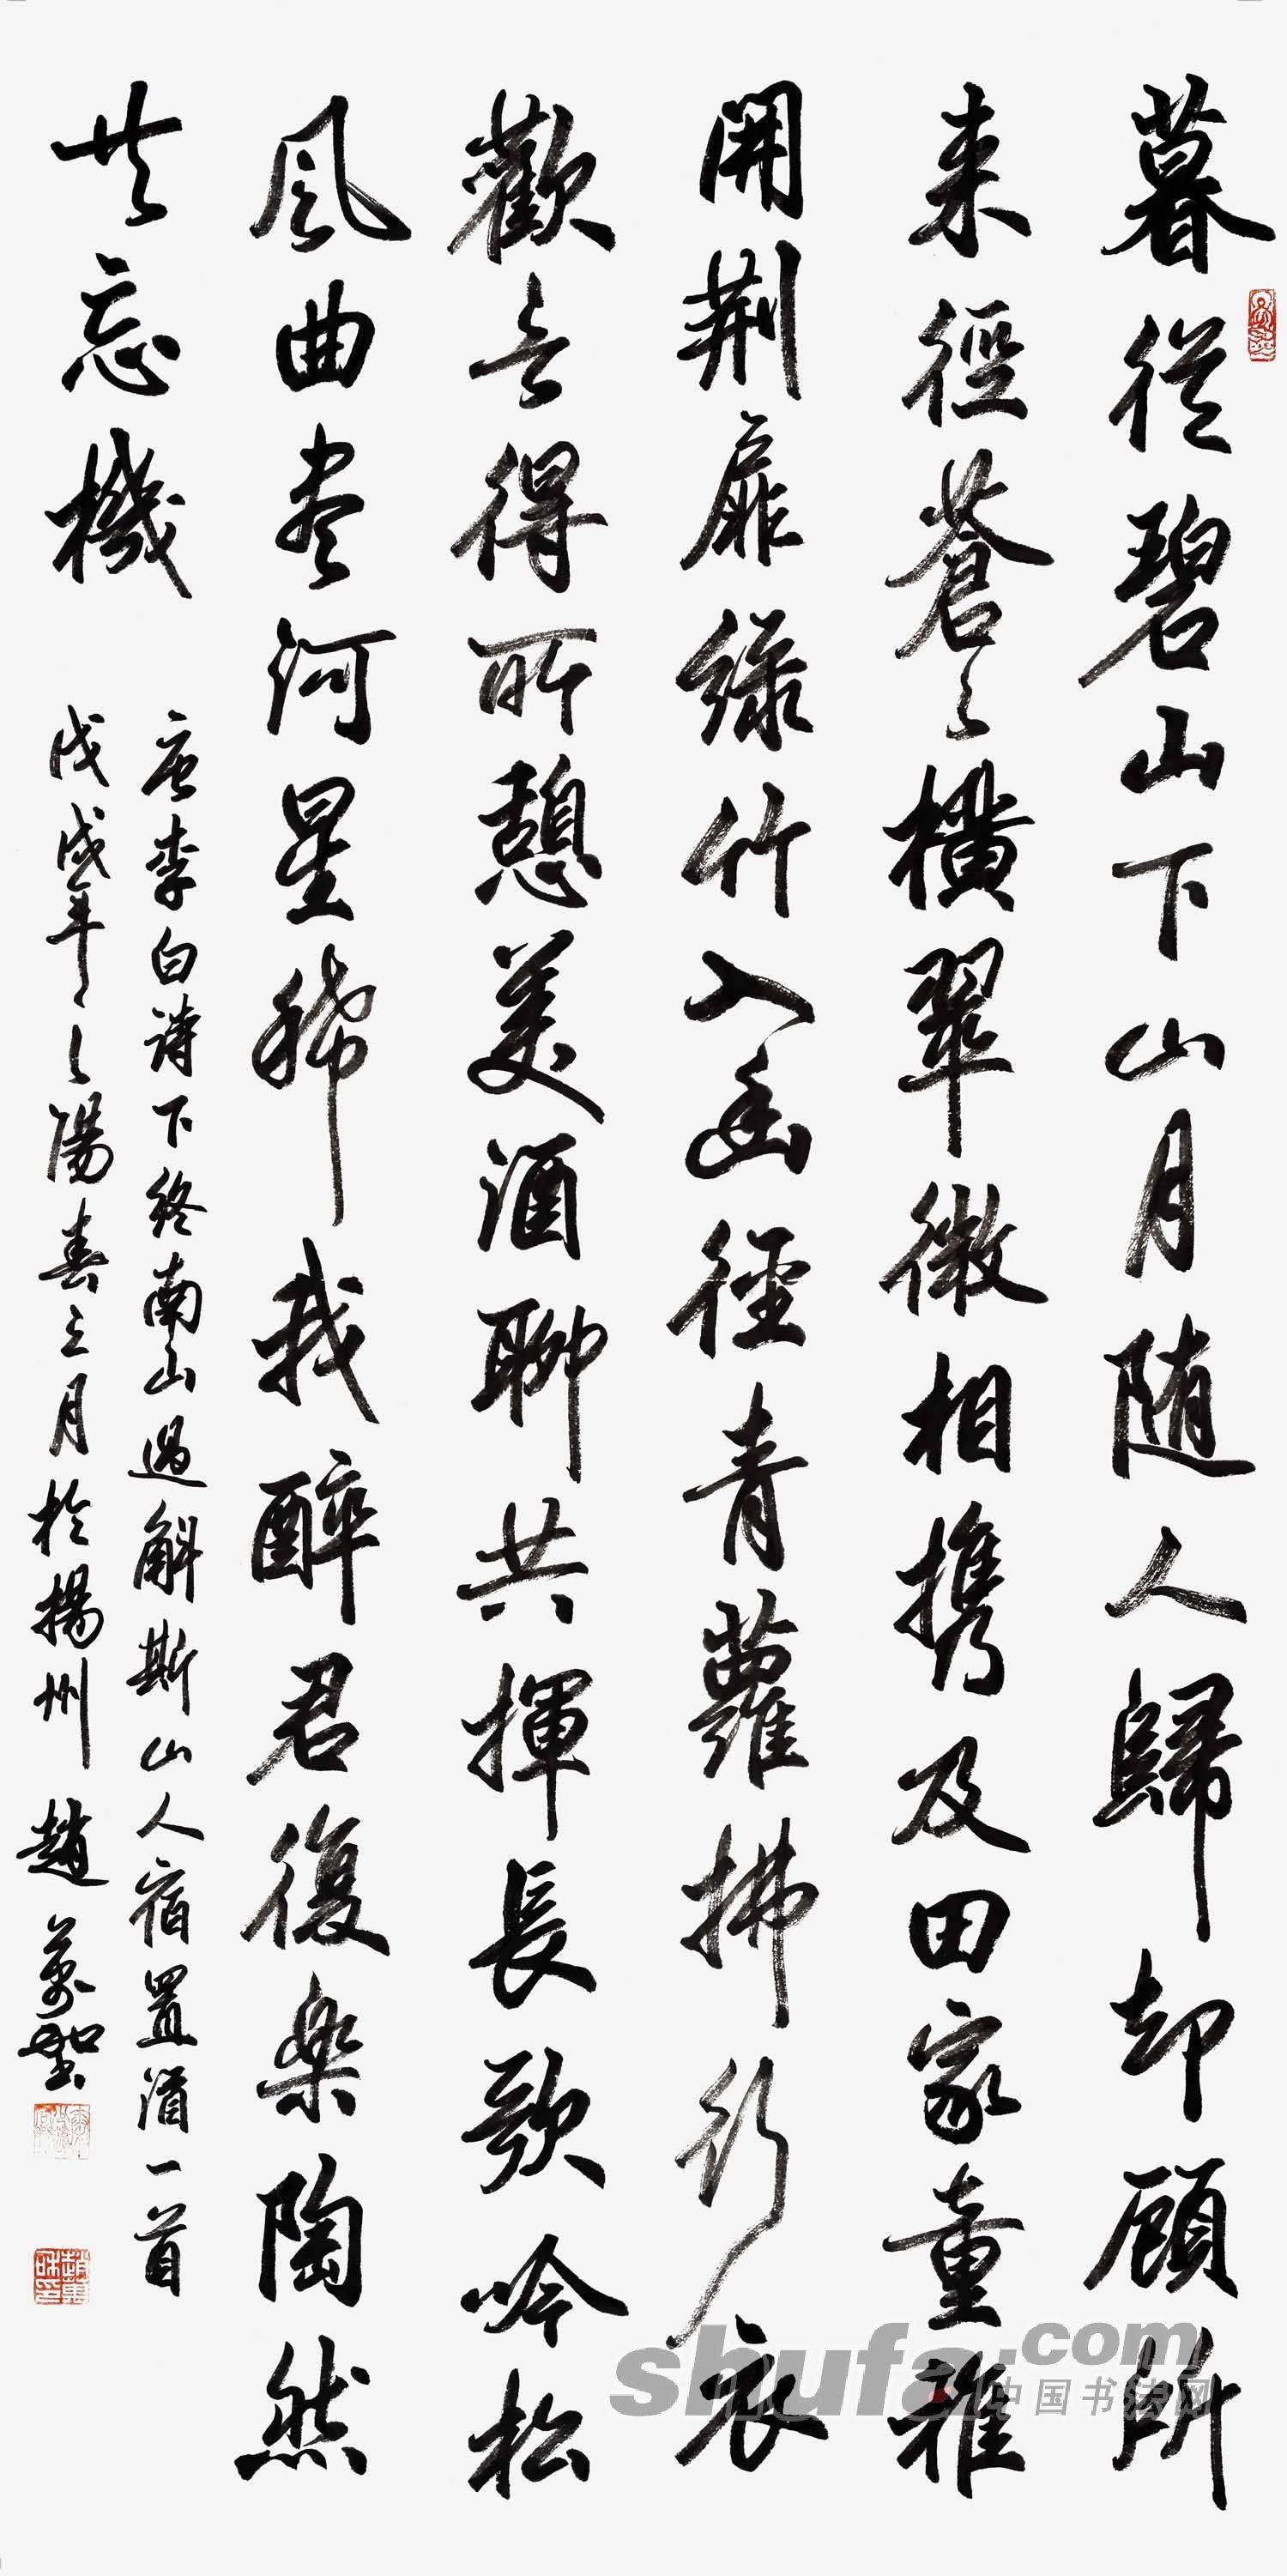 暮從碧山下山月随人歸却顧所
来徑蒼々橫翠微相携及田家童稚
開荆扉綠竹入幽徑青蘿拂行衣
歡言得所憩美酒聊共揮長歌吟松
風曲尽河星稀我醉君復楽陶然
共忘機
唐李白詩下终南山過斛斯山人宿置酒一首
戊戌年之陽春三月於揚州 趙萬
shufa.com
中国书法网